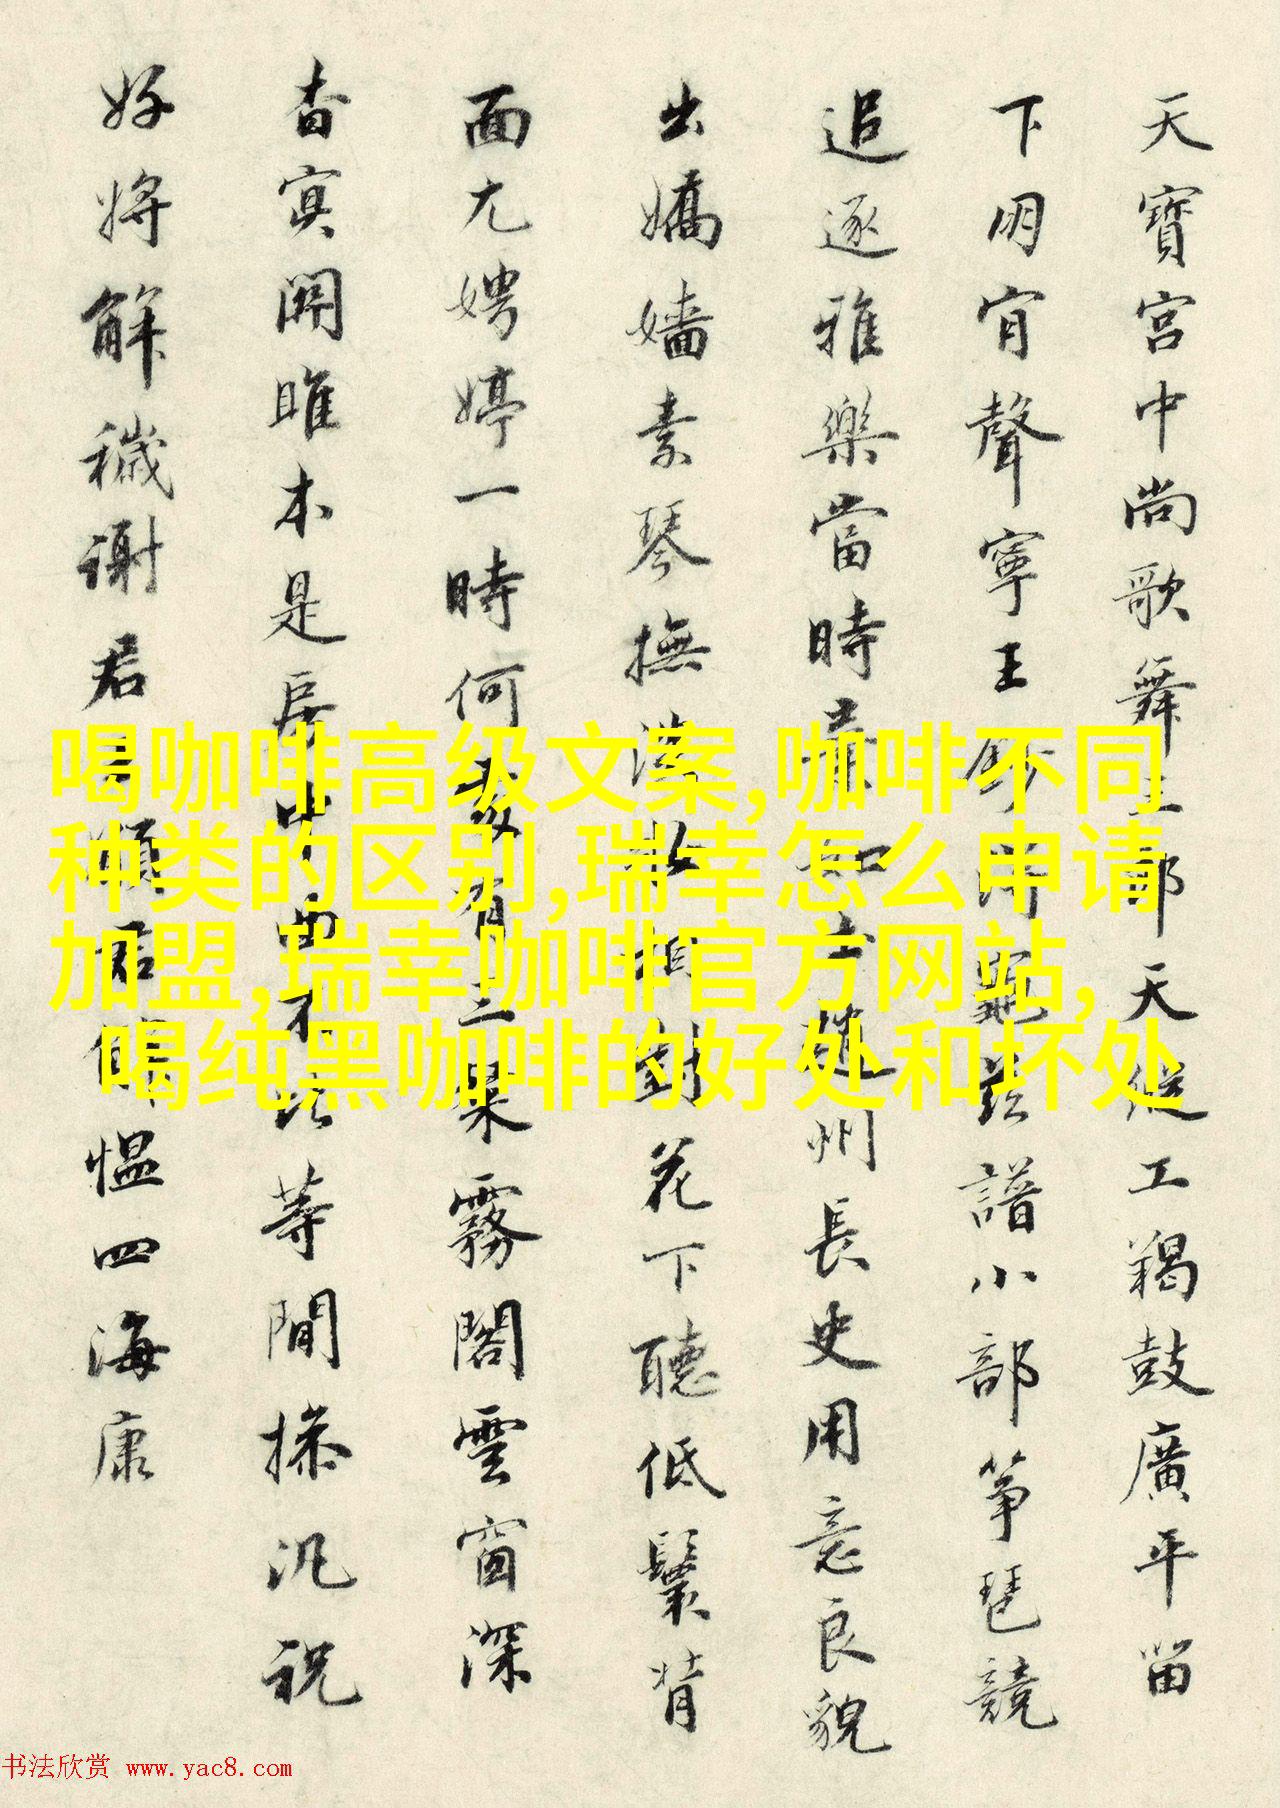 天寶宮中尚歌舞部天縱工羯鼓廣平留
下朋肯聲寧王龜茲譜小部筝琶競
追逐雅樂當時知州長史用意良貌
出嬌嬙素琴撫相對花下聽低鬟背
面尤娉婷一時何有霧閣雲窗深
杳冥關雎本是房中曲不比等閒操汎祝
好將解穢謝君王願君愠四海康
喝咖啡高级文案,咖啡不同
种类的区别,瑞幸怎么申请
加盟,瑞幸咖啡官方网站,
喝纯黑咖啡的好处和坏处
书法欣赏 www.yac8.com